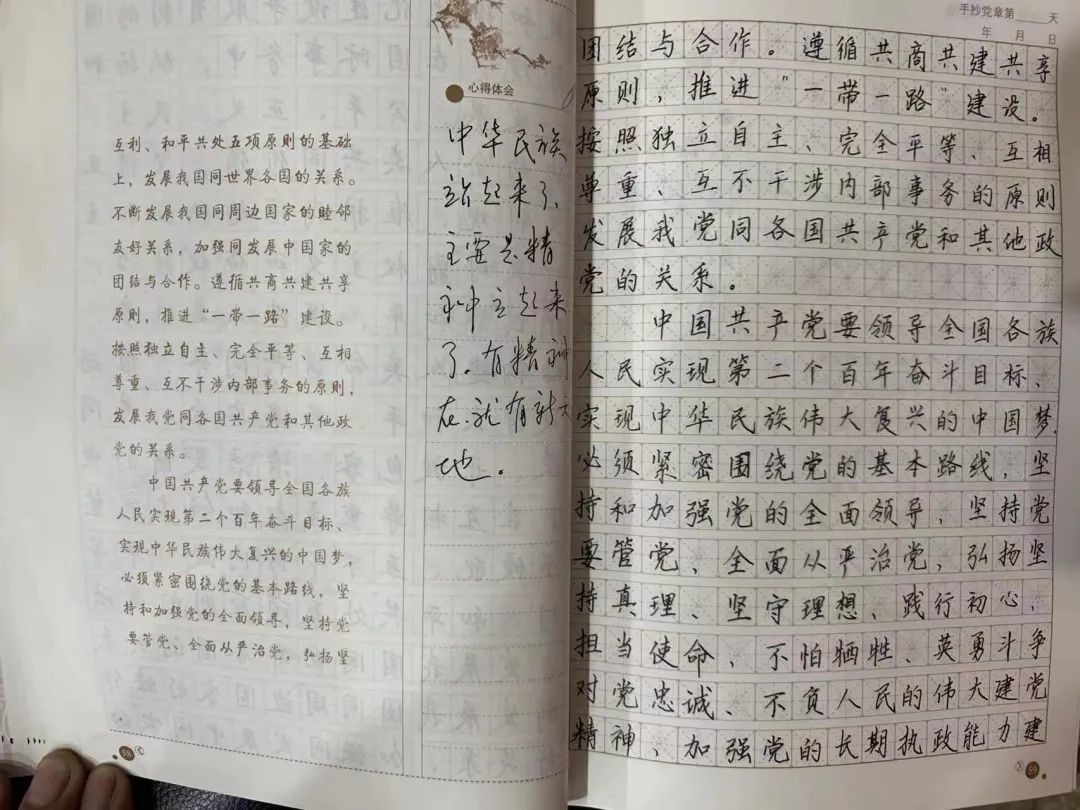 互利、和平共处五项原则的基础
上，发展我国同世界各国的关系。
不断发展我国同周边国家的睦邻
友好关系，加强同发展中国家的
团结与合作。遵循共商共建共享
原则，推进“一带一路”建设。
按照独立自主、完全平等、互相
尊重、互不干涉内部事务的原则，
发展我党同各国共产党和其他政
党的关系。
中国共产党要领导全国各族
人民实现第二个百年奋斗目标、
实现中华民族伟大复兴的中国梦，
必须紧密围绕党的基本路线，坚
持和加强党的全面领导，坚持党
要管党、全面从严治党，弘扬坚
58
心得体会
中华民族
站起来了，
主要是精
神上起来
了。有精神
在.就有新天
地。
手抄党章第 天
年 月 日
团结与合作。遵循共商共建共享
原则，推进“一带一路”建设。
按照独立自主、完全平等、互相
尊重、互不干涉内部事务的原则
发展我党同各国共产党和其他政
党的关系。
中国共产党要领导全国各族
人民实现第二个百年奋斗目标、
实现中华民族伟大复兴的中国梦，
必须紧密围绕党的基本路线，坚
持和加强党的全面领导，坚持党
要管党、全面从严治党，弘扬坚
持真理、坚守理想、践行初心、
担当使命、不怕牺牲、英勇斗争
对党忠诚、不负人民的伟大建党
精神、加强党的长期执政能力建
59